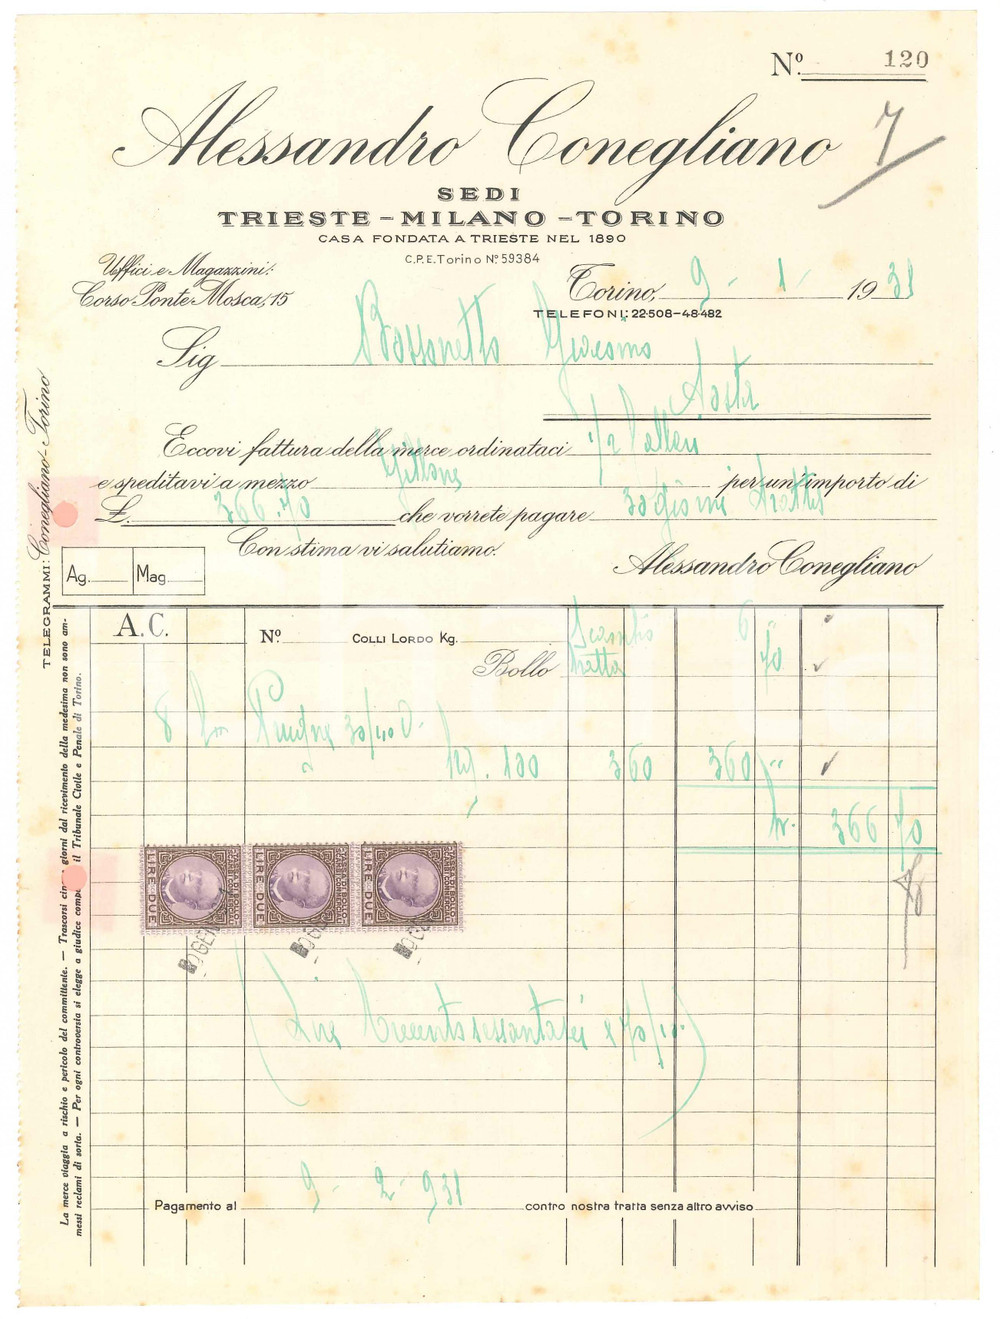 Nº. 120
7
Alessandro Conegliano
SEDI
TRIESTE - MILANO - TORINO
CASA FONDATA A TRIESTE NEL 1890
C.P.E. Torino Nº 59384
Uffici e Magazzini:
Corso Ponte Mosca, 15
Torino, 9 - 1 - 1931
TELEFONI: 22-508-48-482
Sig Giacomo
Aosta
Eccovi fattura della merce ordinataci
e speditavi a mezzo per un'importo di
£. 366.70 che vorrete pagare 30 giorni
Con stima vi salutiamo.
Alessandro Conegliano
Ag. Mag.
TELEGRAMMI: Conegliano-Torino
A. C. Nº COLLI LORDO Kg. 6
Bollo tratta 70
8 30/40
Kg. 100 360 360 "
366 70
LIRE DUE LIRE DUE LIRE DUE
Lire trecentosessantasei e 70/10
9 - 2 - 931
Pagamento al contro nostra tratta senza altro avviso
La merce viaggia a rischio e pericolo del committente. — Trascorsi giorni dal ricevimento della medesima non sono am-
messi reclami di sorta. — Per ogni controversia si elegge a giudice il Tribunale Civile e Penale di Torino.